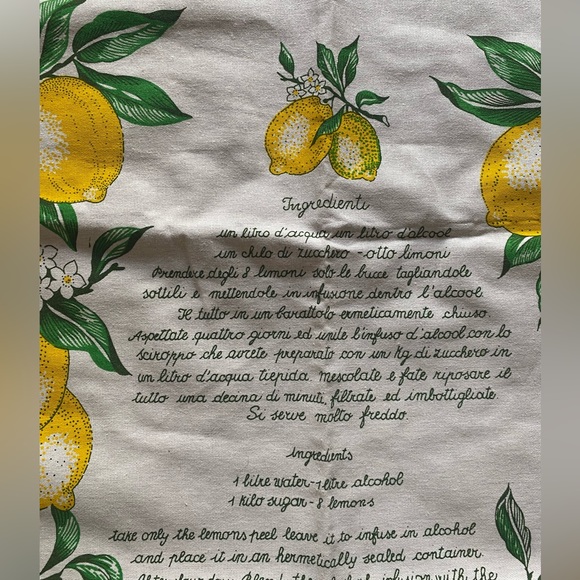 Ingredienti
un litro d'acqua un litro d'alcool
un chilo di zucchero - otto limoni
Prendere degli 8 limoni solo le bucce tagliandole
sottili e mettendole in infusione dentro l'alcool
Il tutto in un barattolo ermeticamente chiuso.
Aspettate quattro giorni ed unite l'infuso d'alcool con lo
sciroppo che avrete preparato con un Kg di zucchero in
un litro d'acqua tiepida, mescolate e fate riposare il
tutto una decina di minuti, filtrate ed imbottigliate
Si serve molto freddo.
Ingredients
1 litre water - 1 litre alcohol
1 kilo sugar - 8 lemons
take only the lemons peel leave it to infuse in alcohol
and place it in an hermetically sealed container.
infusion with the